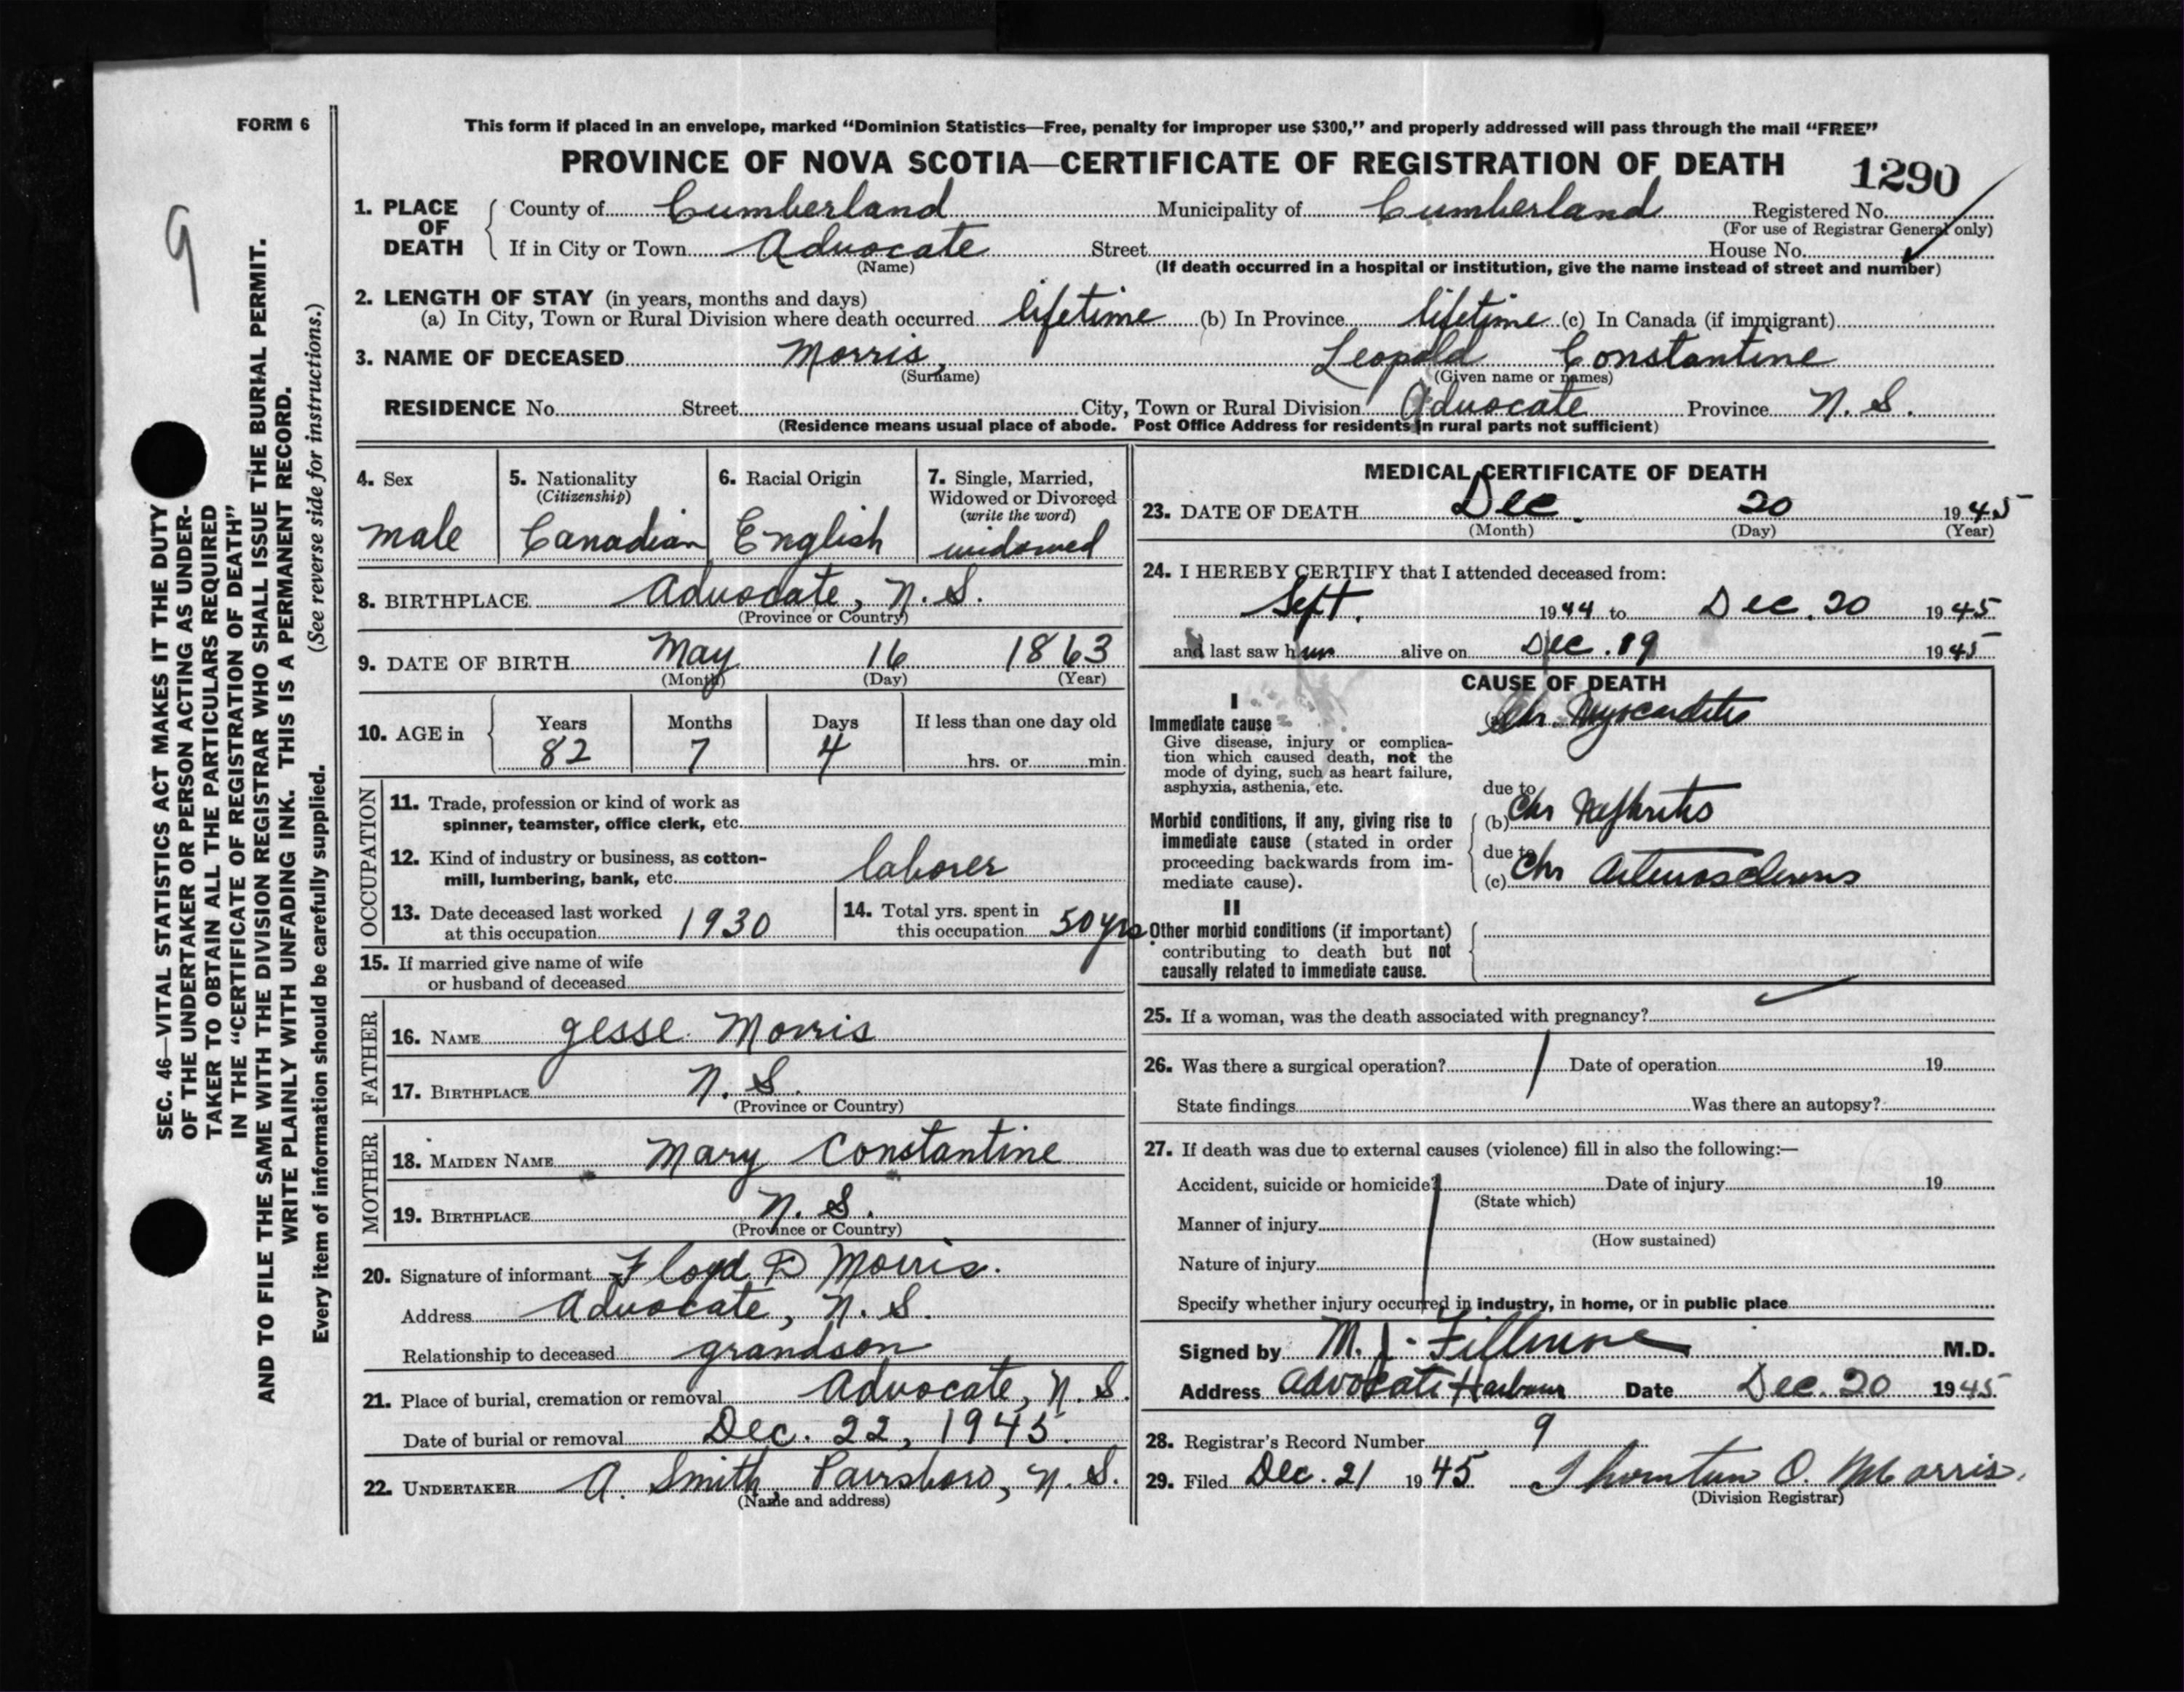 FORM 6
This form if placed in an envelope, marked “Dominion Statistics—Free, penalty for improper use $300,” and properly addressed will pass through the mail “FREE”
PROVINCE OF NOVA SCOTIA—CERTIFICATE OF REGISTRATION OF DEATH 1290
9
SEC. 46—VITAL STATISTICS ACT MAKES IT THE DUTY
OF THE UNDERTAKER OR PERSON ACTING AS UNDER-
TAKER TO OBTAIN ALL THE PARTICULARS REQUIRED
IN THE “CERTIFICATE OF REGISTRATION OF DEATH”
AND TO FILE THE SAME WITH THE DIVISION REGISTRAR WHO SHALL ISSUE THE BURIAL PERMIT.
WRITE PLAINLY WITH UNFADING INK. THIS IS A PERMANENT RECORD.
Every item of information should be carefully supplied. (See reverse side for instructions.)
1. PLACE OF DEATH County of Cumberland Municipality of Cumberland Registered No.
(For use of Registrar General only)
If in City or Town Advocate Street House No.
(Name) (If death occurred in a hospital or institution, give the name instead of street and number)
2. LENGTH OF STAY (in years, months and days)
(a) In City, Town or Rural Division where death occurred lifetime (b) In Province lifetime (c) In Canada (if immigrant)
3. NAME OF DECEASED Morris, Leopold Constantine
(Surname) (Given name or names)
RESIDENCE No. Street City, Town or Rural Division Advocate Province N. S.
(Residence means usual place of abode. Post Office Address for residents in rural parts not sufficient)
4. Sex
male
5. Nationality
(Citizenship)
Canadian
6. Racial Origin
English
7. Single, Married,
Widowed or Divorced
(write the word)
widowed
8. BIRTHPLACE Advocate, N. S.
(Province or Country)
9. DATE OF BIRTH May 16 1863
(Month) (Day) (Year)
10. AGE in Years Months Days If less than one day old
82 7 4 hrs. or min.
OCCUPATION
11. Trade, profession or kind of work as
spinner, teamster, office clerk, etc.
12. Kind of industry or business, as cotton-
mill, lumbering, bank, etc. laborer
13. Date deceased last worked
at this occupation 1930
14. Total yrs. spent in
this occupation 50 yrs
15. If married give name of wife
or husband of deceased
FATHER
16. NAME Jesse Morris
17. BIRTHPLACE N. S.
(Province or Country)
MOTHER
18. MAIDEN NAME Mary Constantine
19. BIRTHPLACE N. S.
(Province or Country)
20. Signature of informant Floyd D Morris.
Address Advocate, N. S.
Relationship to deceased grandson
21. Place of burial, cremation or removal Advocate, N. S.
Date of burial or removal Dec. 22, 1945.
22. UNDERTAKER A. Smith, Parrsboro, N. S.
(Name and address)
MEDICAL CERTIFICATE OF DEATH
23. DATE OF DEATH Dec. 20 1945
(Month) (Day) (Year)
24. I HEREBY CERTIFY that I attended deceased from:
Sept. 1944 to Dec. 20 1945
and last saw him alive on Dec. 19 1945
CAUSE OF DEATH
I
Immediate cause (a) Chr. Myocarditis
Give disease, injury or complica-
tion which caused death, not the
mode of dying, such as heart failure,
asphyxia, asthenia, etc.
due to
Morbid conditions, if any, giving rise to (b) Chr Nephritis
immediate cause (stated in order
proceeding backwards from im-
mediate cause).
due to
(c) Chr Arteriosclerosis
II
Other morbid conditions (if important)
contributing to death but not
causally related to immediate cause.
25. If a woman, was the death associated with pregnancy?
26. Was there a surgical operation? Date of operation 19
State findings Was there an autopsy?
27. If death was due to external causes (violence) fill in also the following:—
Accident, suicide or homicide? Date of injury 19
(State which)
Manner of injury
(How sustained)
Nature of injury
Specify whether injury occurred in industry, in home, or in public place
Signed by M. J. Fillmore M.D.
Address Advocate Harbour Date Dec. 20 1945
28. Registrar’s Record Number 9
29. Filed Dec. 21 1945 Thornton O. Morris.
(Division Registrar)